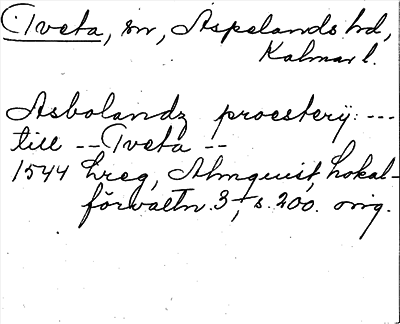 Tveta, sn, Aspelands hd,
Kalmar l.
Asbolandz proesterij: ---
till -- Tveta --
1544 Lreg, Almquist, Lokal-
förvaltn. 3, s. 200. orig.